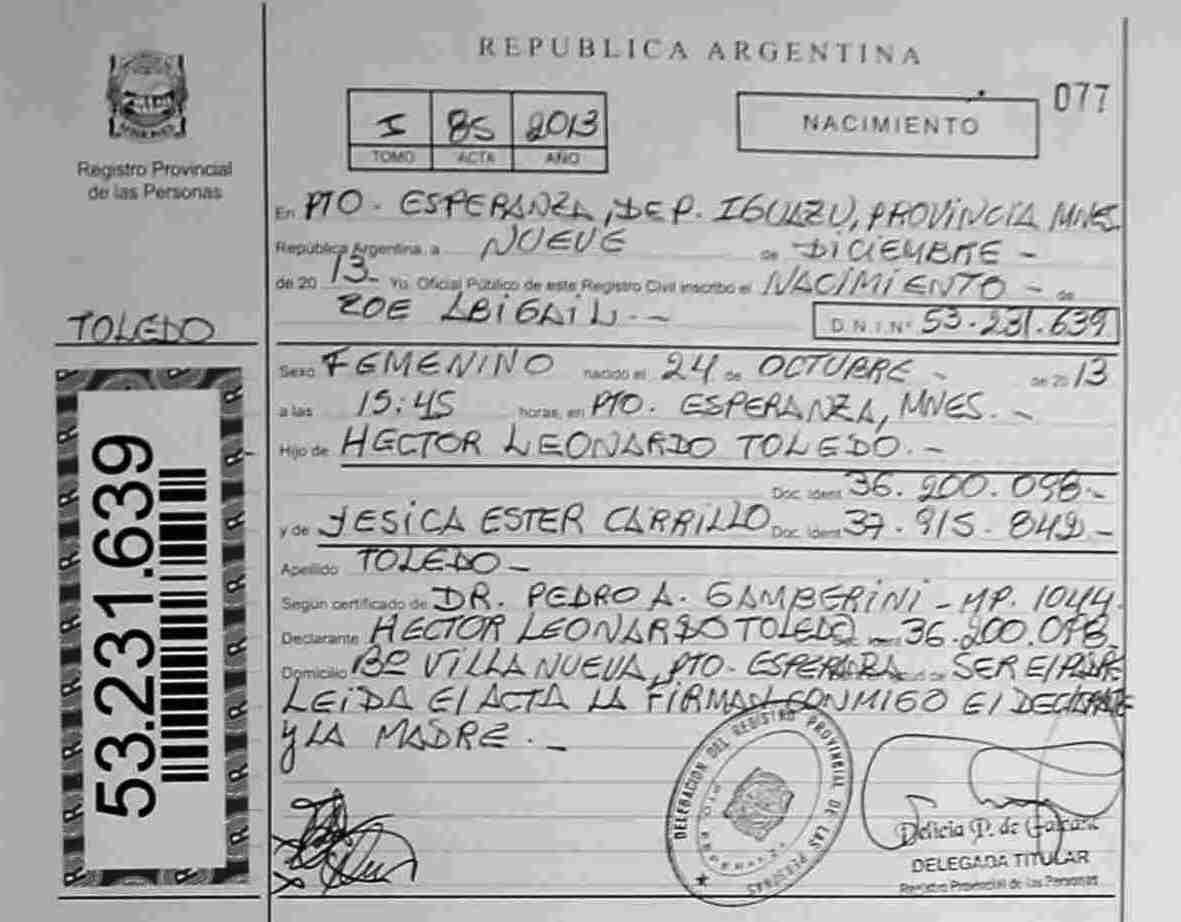 REPUBLICA ARGENTINA
077
I 85 2013
TOMO ACTA AÑO
NACIMIENTO
Registro Provincial
de las Personas
En PTO. ESPERANZA, DEP. IGUAZU, PROVINCIA MNES.
República Argentina, a NUEVE de DICIEMBRE -
de 20 13- Yo, Oficial Público de este Registro Civil inscribo el NACIMIENTO - de
ZOE ABIGAIL.-
D.N.I.Nº 53.231.639
TOLEDO
Sexo FEMENINO nacido el 24 de OCTUBRE - de 20 13
a las 15:45 horas, en PTO. ESPERANZA, MNES.-
Hijo de HECTOR LEONARDO TOLEDO.-
Doc. Ident. 36.200.098.-
y de YESICA ESTER CARRILLO Doc. Ident. 37.915.842-
Apellido TOLEDO-
Según certificado de DR. PEDRO A. GAMBERINI - MP. 1044.
Declarante HECTOR LEONARDO TOLEDO 36.200.098
Domicilio Bº VILLA NUEVA, PTO. ESPERANZA SER El PADRE
LEIDA El ACTA LA FIRMAN CONMIGO El DECLARANTE
y LA MADRE.-
53.231.639
DELEGACION DEL REGISTRO PROVINCIAL DE LAS PERSONAS
Delicia P. de
DELEGADA TITULAR
Registro Provincial de las Personas